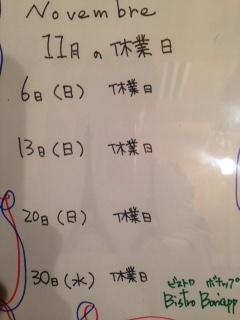 Novembre
11月の休業日
6日(日) 休業日
13日(日) 休業日
20日(日) 休業日
30日(水) 休業日
ビストロ ボナップ
Bistro Bon'app